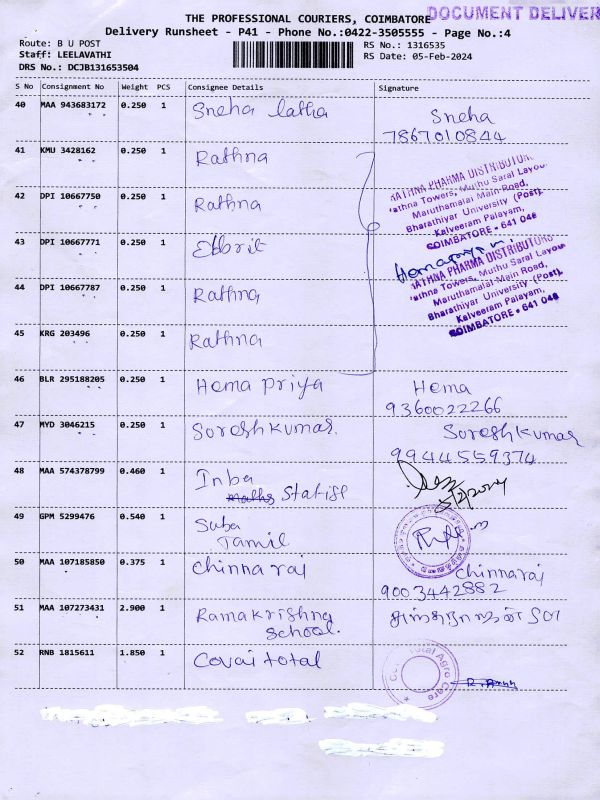 THE PROFESSIONAL COURIERS, COIMBATORE
DOCUMENT DELIVER
Delivery Runsheet - P41 - Phone No.:0422-3505555 - Page No.:4
Route: B U POST
RS No.: 1316535
Staff: LEELAVATHI
RS Date: 05-Feb-2024
DRS No.: DCJB131653504
S No Consignment No Weight PCS Consignee Details Signature
40 MAA 943683172 0.250 1 Sneha latha Sneha
7867010844
41 KMU 3428162 0.250 1 Rathna
RATHNA PHARMA DISTRIBUTORS
Rathna Towers, Muthu Saral Layout
Maruthamalai Main Road,
Bharathiyar University (Post),
Kalveeram Palayam,
COIMBATORE - 641 046
42 DPI 10667750 0.250 1 Rathna
43 DPI 10667771 0.250 1
RATHNA PHARMA DISTRIBUTORS
Rathna Towers, Muthu Saral Layout
Maruthamalai Main Road,
Bharathiyar University (Post),
Kalveeram Palayam,
COIMBATORE - 641 046
44 DPI 10667787 0.250 1 Rathna
45 KRG 203496 0.250 1 Rathna
46 BLR 295188205 0.250 1 Hema Priya Hema
9360022266
47 MYD 3046215 0.250 1 Soreshkumar. Soreshkumar
9944559374
48 MAA 574378799 0.460 1 Inba
maths Statise
49 GPM 5299476 0.540 1 Suba
Tamil
50 MAA 107185850 0.375 1 Chinna raj Chinnaraj
9003442882
51 MAA 107273431 2.900 1 Ramakrishna
School.
52 RNB 1815611 1.850 1 Covai total
Covai Total Agro Care